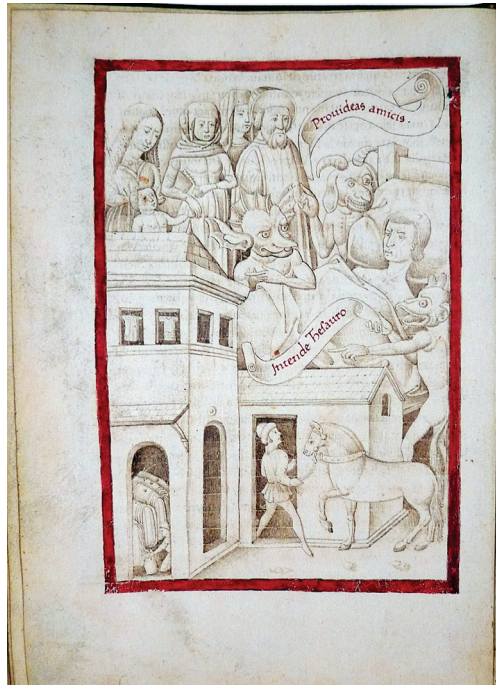 Prouideas amicis.
Intende thesauro